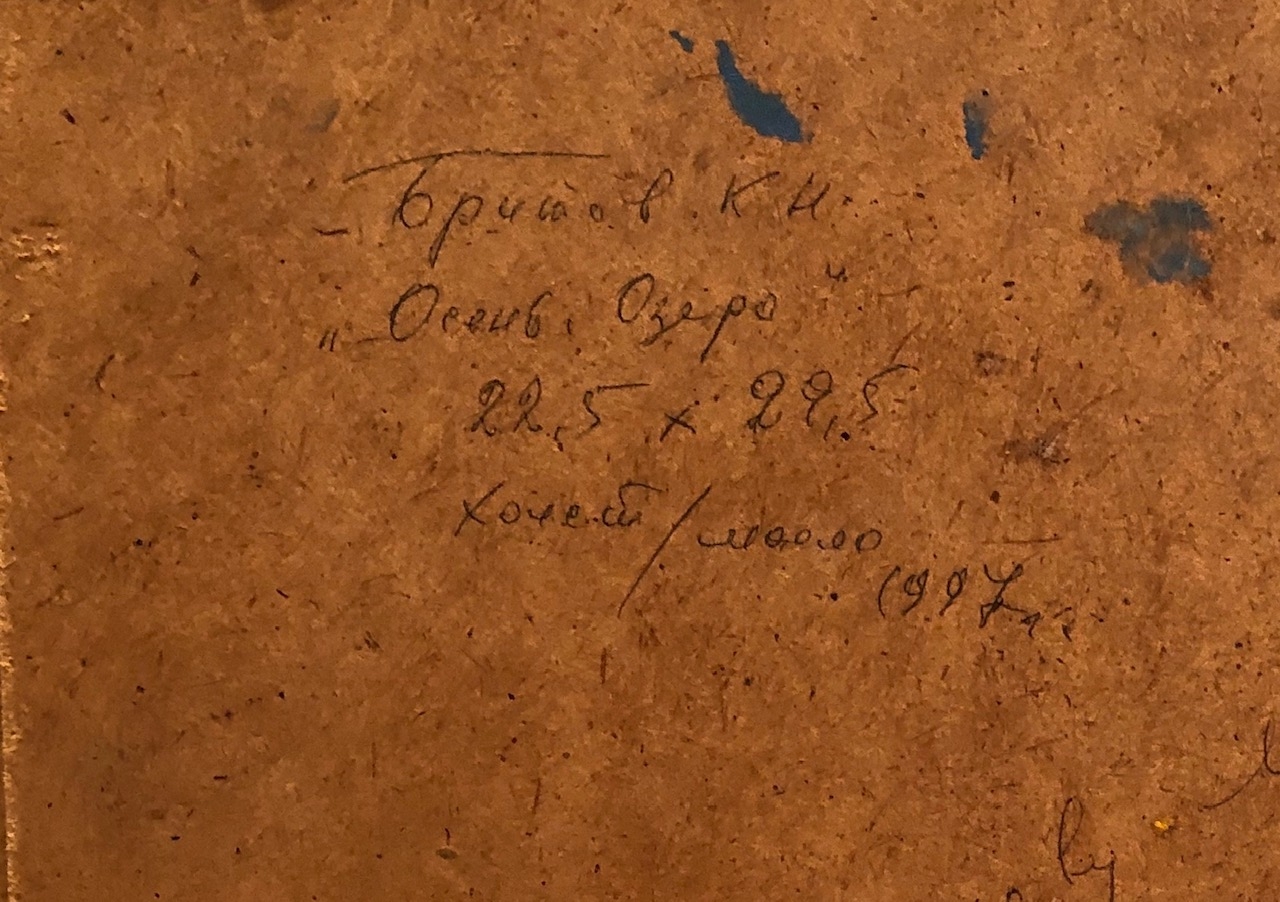 Бритов К Н.
„Осень. Озеро"
22,5 х 29,5
холст / масло
1997 г.
by